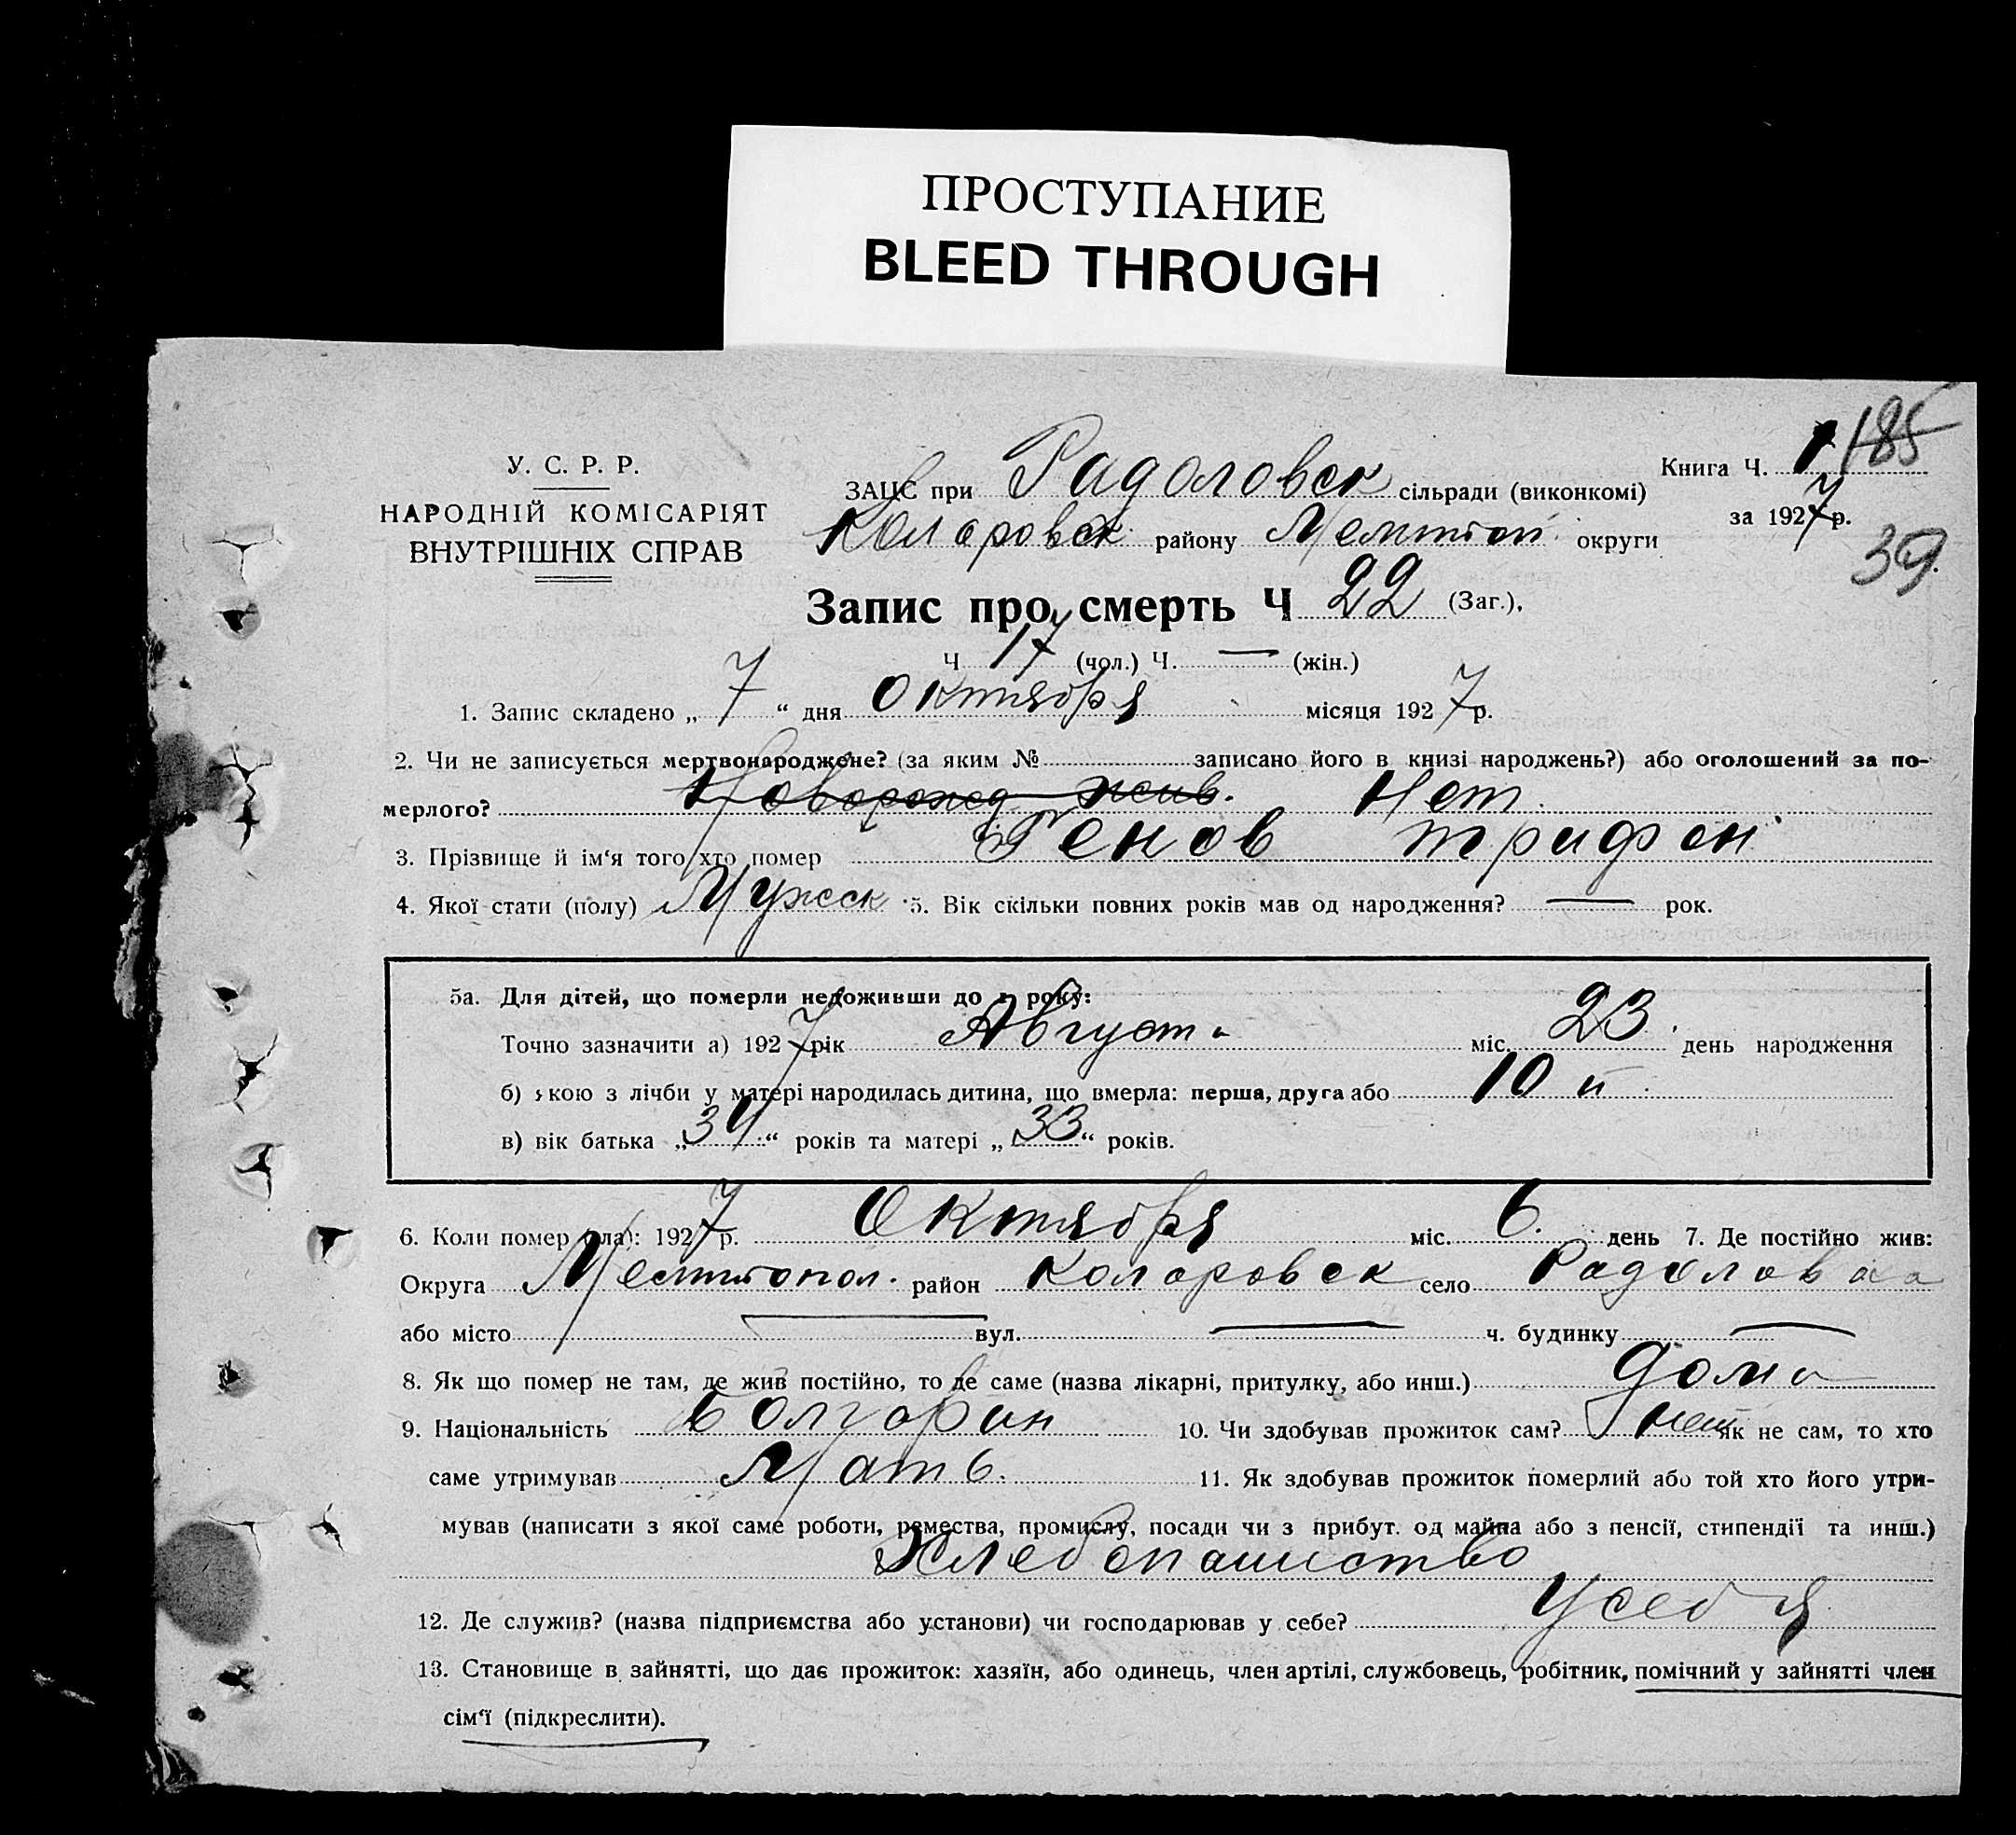 ПРОСТУПАНИЕ
BLEED THROUGH
185
У. С. Р. Р.
НАРОДНІЙ КОМІСАРІЯТ
ВНУТРІШНІХ СПРАВ
Книга Ч. 1
за 1927 р.
39.
ЗАЦС при Радоловск сільради (виконкомі)
Коларовск района району округи
Запис про смерть Ч 22 (Заг.),
Ч 17 (чол.) Ч. — (жін.)
1. Запис складено „ 7 “ дня Октября місяця 1927 р.
2. Чи не записується мертвонароджене? (за яким № записано його в книзі народжень?) або оголошений за по-
мерлого? Новорожд жив. Нет.
3. Прізвище й ім‘я того хто помер Генов Трифон
4. Якої стати (полу) Мужск 5. Вік скільки повних років мав од народження? — рок.
5а. Для дітей, що померли недоживши до 1 року:
Точно зазначити а) 1927 рік Августа міс. 23 день народження
б) якою з лічби у матері народилась дитина, що вмерла: перша, друга або 10 й
в) вік батька „ 34 “ років та матері „ 33 “ років.
6. Коли помер (ла): 1927 р. Октября міс. 6. день 7. Де постійно жив:
Округа район Коларовск село Радоловка
або місто — вул. — ч. будинку —
8. Як що помер не там, де жив постійно, то де саме (назва лікарні, притулку, або инш.) дома
9. Національність Болгарин 10. Чи здобував прожиток сам? нет як не сам, то хто
саме утримував Мать. 11. Як здобував прожиток померлий або той хто його утри-
мував (написати з якої саме роботи, ремества, промислу, посади чи з прибут. од майна або з пенсії, стипендії та инш.)
Хлебопашество
12. Де служив? (назва підприємства або установи) чи господарював у себе? У себя
13. Становище в зайнятті, що дає прожиток: хазяїн, або одинець, член артілі, службовець, робітник, помічний у зайнятті член
сім‘ї (підкреслити).